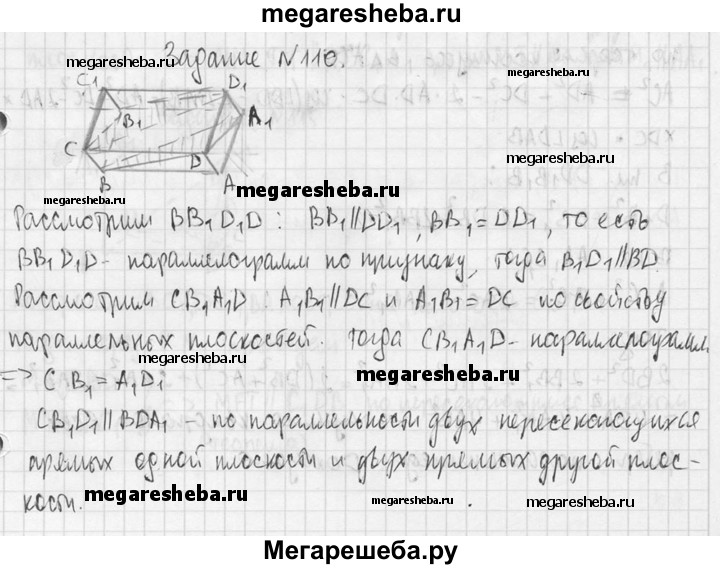 megaresheba.ru
Задание N110.
megaresheba.ru
megaresheba.ru
C1 D1
B1 A1
C D
B A
megaresheba.ru
megaresheba.ru
megaresheba.ru
Рассмотрим BB1D1D: BB1∥DD1, BB1=DD1, то есть
BB1D1D- параллелограмм по признаку, тогда B1D1∥BD
megaresheba.ru
megaresheba.ru
Рассмотрим CB1A1D: A1B1∥DC и A1B1=DC по свойству
параллельных плоскостей. Тогда CB1A1D- параллелограмм
megaresheba.ru
=> CB1=A1D1
megaresheba.ru
megaresheba.ru
CB1D1∥BDA1 - по параллельности двух пересекающихся
прямых одной плоскости и двух прямых другой плос-
кости.
megaresheba.ru
megaresheba.ru
megaresheba.ru
Мегарешеба.ру